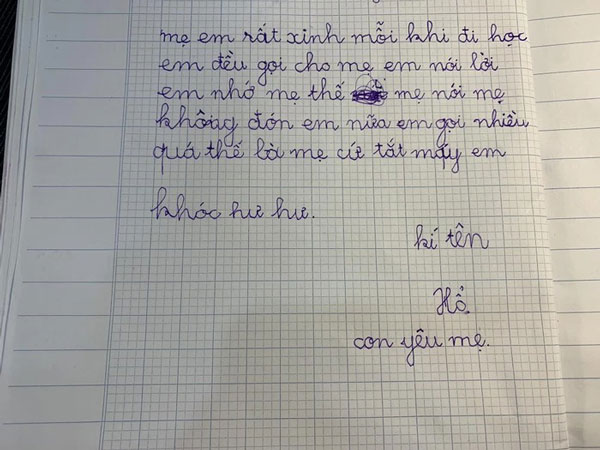 mẹ em rất xinh mỗi khi đi học
em đều gọi cho mẹ em nói lời
em nhớ mẹ thế mẹ nói mẹ
không đón em nữa em gọi nhiều
quá thế lời mẹ cứ tắt máy em
khóc hư hư.
kí tên
Hổ
con yêu mẹ.